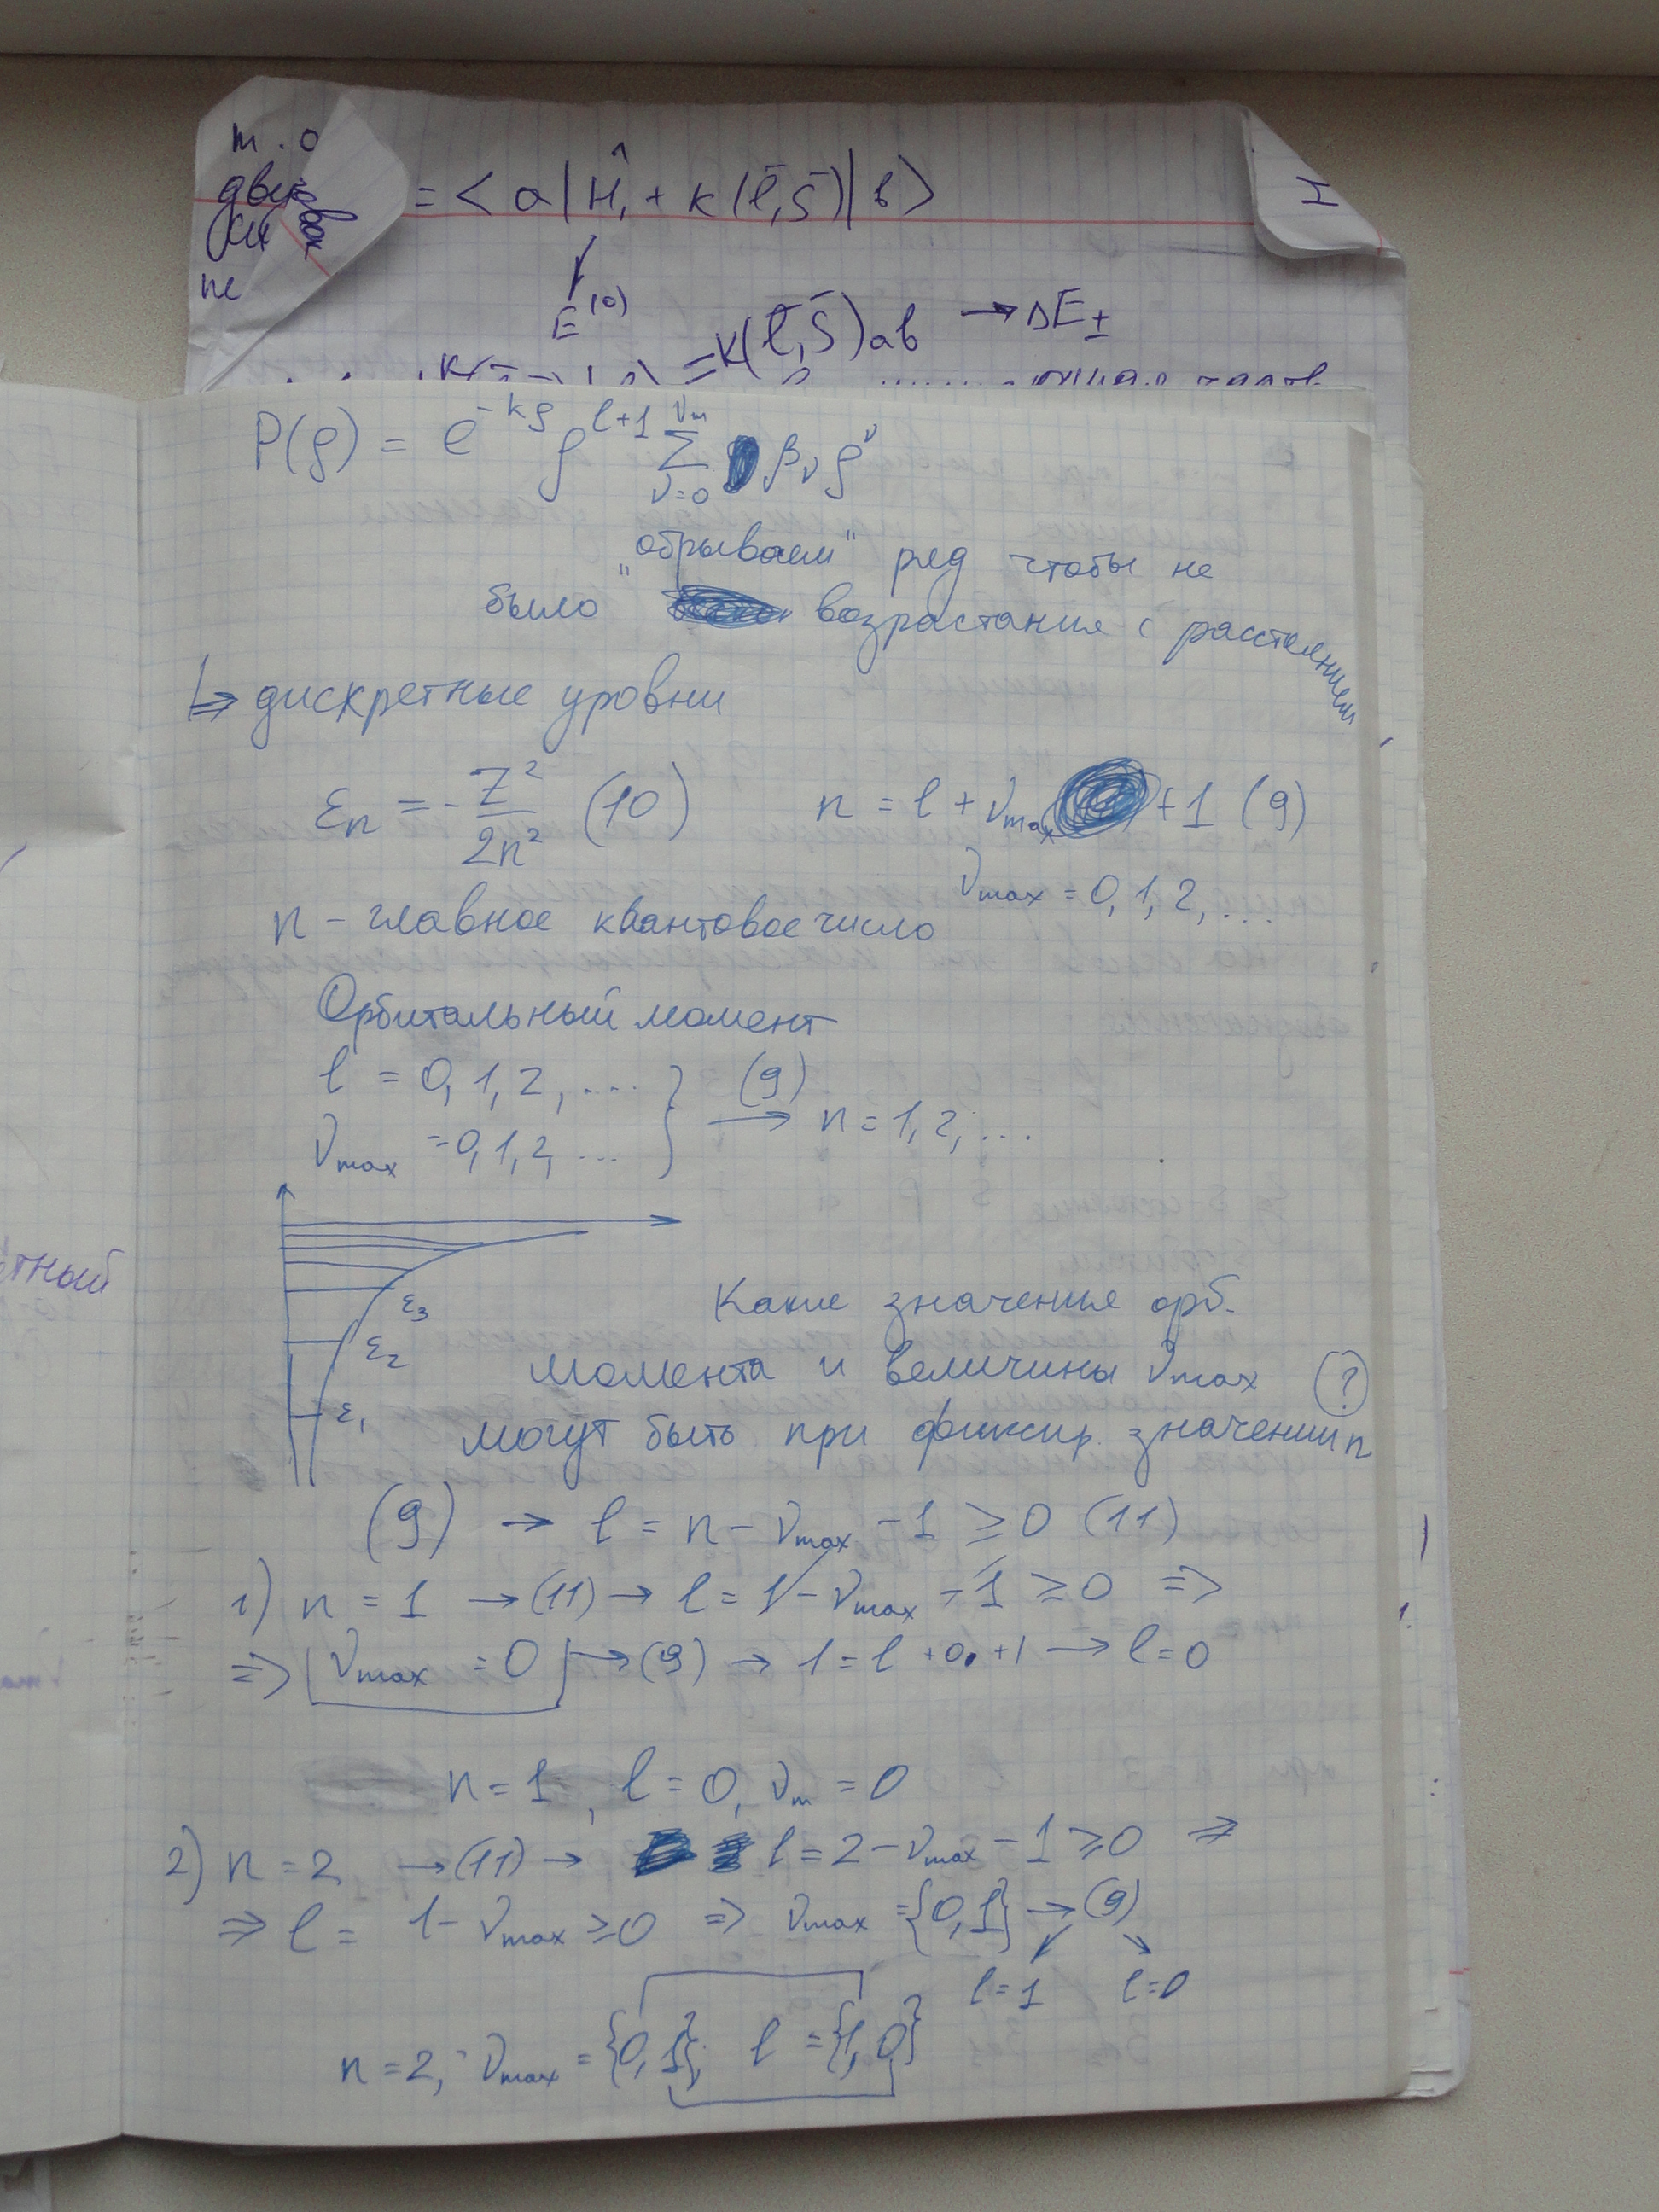 т. о
= < a | Ĥ₁ + k (l̄, s̄) | b >
не
E⁽⁰⁾
= k(l̄, s̄)ab → ΔE±
P(ρ) = e^{-kρ} ρ^{l+1} Σ_{ν=0}^{νm} βν ρ^ν
"обрываем" ряд чтобы не
было возрастания с расстоянием
↳ дискретные уровни
εn = - Z²/2n² (10) n = l + νmax + 1 (9)
νmax = 0, 1, 2, ...
n - главное квантовое число
Орбитальный момент
l = 0, 1, 2, ... } (9)
νmax = 0, 1, 2, ... } → n = 1, 2, ...
ε₃
ε₂
ε₁
Какие значения орб.
момента и величины νmax (?)
могут быть при фиксир. значении n
(9) → l = n - νmax - 1 ≥ 0 (11)
1) n = 1 → (11) → l = 1 - νmax - 1 ≥ 0 ⇒
⇒ νmax = 0 → (9) → 1 = l + 0 + 1 → l = 0
n = 1, l = 0, νm = 0
2) n = 2 → (11) → l = 2 - νmax - 1 ≥ 0 ⇒
⇒ l = 1 - νmax ≥ 0 ⇒ νmax = {0, 1} → (9)
l = 1 l = 0
n = 2, νmax = {0, 1}; l = {1, 0}
тный